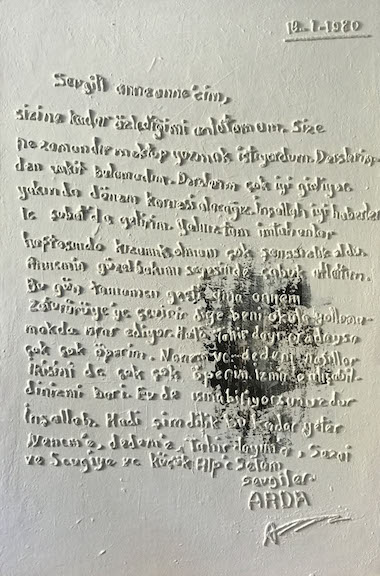 18-1-1980
Sevgili anneanne'cim,
sizi ne kadar özlediğimi anlatamam. Size
ne zamandır mektup yazmak istiyordum. Derslerim-
den vakit bulamadım. Derslerim çok iyi gidiyor
yakında dönem karnesi alacağız. İnşallah iyi haberler
le şubat'da gelirim. Yalnız tam imtihanlar
haftasında kızamık olmam çok fena oldu.
Annemin güzel bakımı sayesinde çabuk atlattım.
Bu gün tamamen geçti ama annem
diye beni okula yollama-
makda ısrar ediyor. Hala Tahir dayı oradaysa
çok çok öperim. Nenem ve dedem nasıllar
İkisini de çok çok öperim. İzmir
dinizmi bari. Evde ısınabiliyorsunuzdur
İnşallah. Hadi şimdilik bu kadar yeter
Nenem'e, dedem'e, Tahir dayıma, Sezai
ve Sevgiye ve küçük Alp'e Selam
sevgiler
ARDA